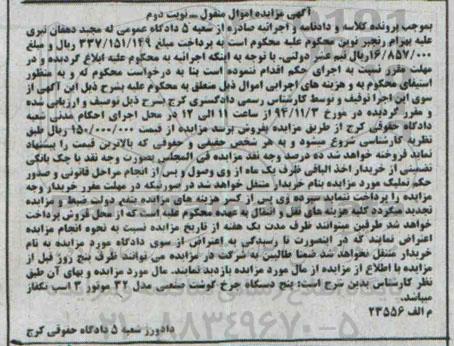 آگهی مزایده اموال منقول ــ نوبت دوم
بموجب پرونده کلاسه و دادنامه و اجرائیه صادره از شعبه ۵ دادگاه عمومی له مجید دهقان نیری
علیه بهرام رنجبر نوین محکوم علیه محکوم است به پرداخت مبلغ ۳۳۷/۱۵۱/۱۴۹ ریال و مبلغ
۱۶/۸۵۷/۰۰۰ریال نیم عشر دولتی. با توجه به اینکه اجرائیه به محکوم علیه ابلاغ گردیده و در
مهلت مقرر نسبت به اجرای حکم اقدام ننموده است بنا به درخواست محکوم له و به منظور
استیفای محکوم به و هزینه های اجرایی اموال ذیل متعلق به محکوم علیه بشرح ذیل این آگهی از
سوی این اجرا توقیف و توسط کارشناس رسمی دادگستری کرج بشرح ذیل توصیف و ارزیابی شده
و مقرر گردیده در مورخ ۹۴/۱۱/۳ از ساعت ۱۱ الی ۱۲ در محل اجرای احکام مدنی شعبه
دادگاه حقوقی کرج از طریق مزایده بفروش برسد مزایده از قیمت ۱۵۰/۰۰۰/۰۰۰ ریال طبق
نظریه کارشناسی شروع میشود و به هر شخص حقیقی و حقوقی که بالاترین قیمت را پیشنهاد
نماید فروخته خواهد شد ده درصد وجه نقد مزایده فی المجلس بصورت وجه نقد یا چک بانکی
تضمینی از خریدار اخذ الباقی ظرف یک ماه از وی وصول و پس از انجام مراحل قانونی و صدور
حکم تملیک مورد مزایده بنام خریدار منتقل خواهد شد در صورتیکه در مهلت مقرر خریدار وجه
مزایده را پرداخت ننماید سپرده وی پس از کسر هزینه های مزایده بنفع دولت ضبط و مزایده
تجدید میگردد کلیه هزینه های نقل و انتقال به عهده محکوم علیه است که از محل فروش پرداخت
خواهد شد طرفین میتوانند ظرف مدت یک هفته از تاریخ مزایده نسبت به نحوه انجام مزایده
اعتراض نمایند که در اینصورت تا رسیدگی به اعتراض از سوی دادگاه مورد مزایده به نام
خریدار منتقل نخواهد شد ضمنا طالبین به شرکت در مزایده می توانند ظرف پنج روز قبل از
مزایده با اطلاع از مزایده از مال مورد مزایده بازدید نمایند. مال مورد مزایده و بهای آن طبق
نظر کارشناس بدین شرح است: پنج دستگاه چرخ گوشت صنعتی مدل ۳۲ موتور ۳ اسب تکفاز
میباشد.
م الف ۲۳۵۵۶
دادورز شعبه ۵ دادگاه حقوقی کرج
۰۲۱-۸۸۳۴۹۶۷۰-۵